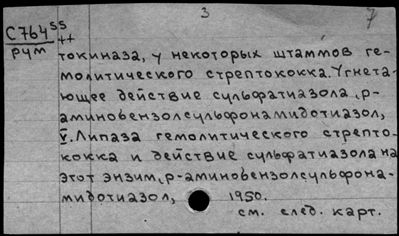 3 7
С764ss
рум ++
токиназа, у некоторых штаммов ге-
молитического стрептококка. Угнета-
ющее действие сульфатиазола, р-
аминобензолсульфонамидотиазол,
V. Липаза гемолитического стрепто-
кокка и действие сульфатиазола на
этот энзим, р-аминобензолсульфона-
мидотиазол, 1950.
см. след. карт.